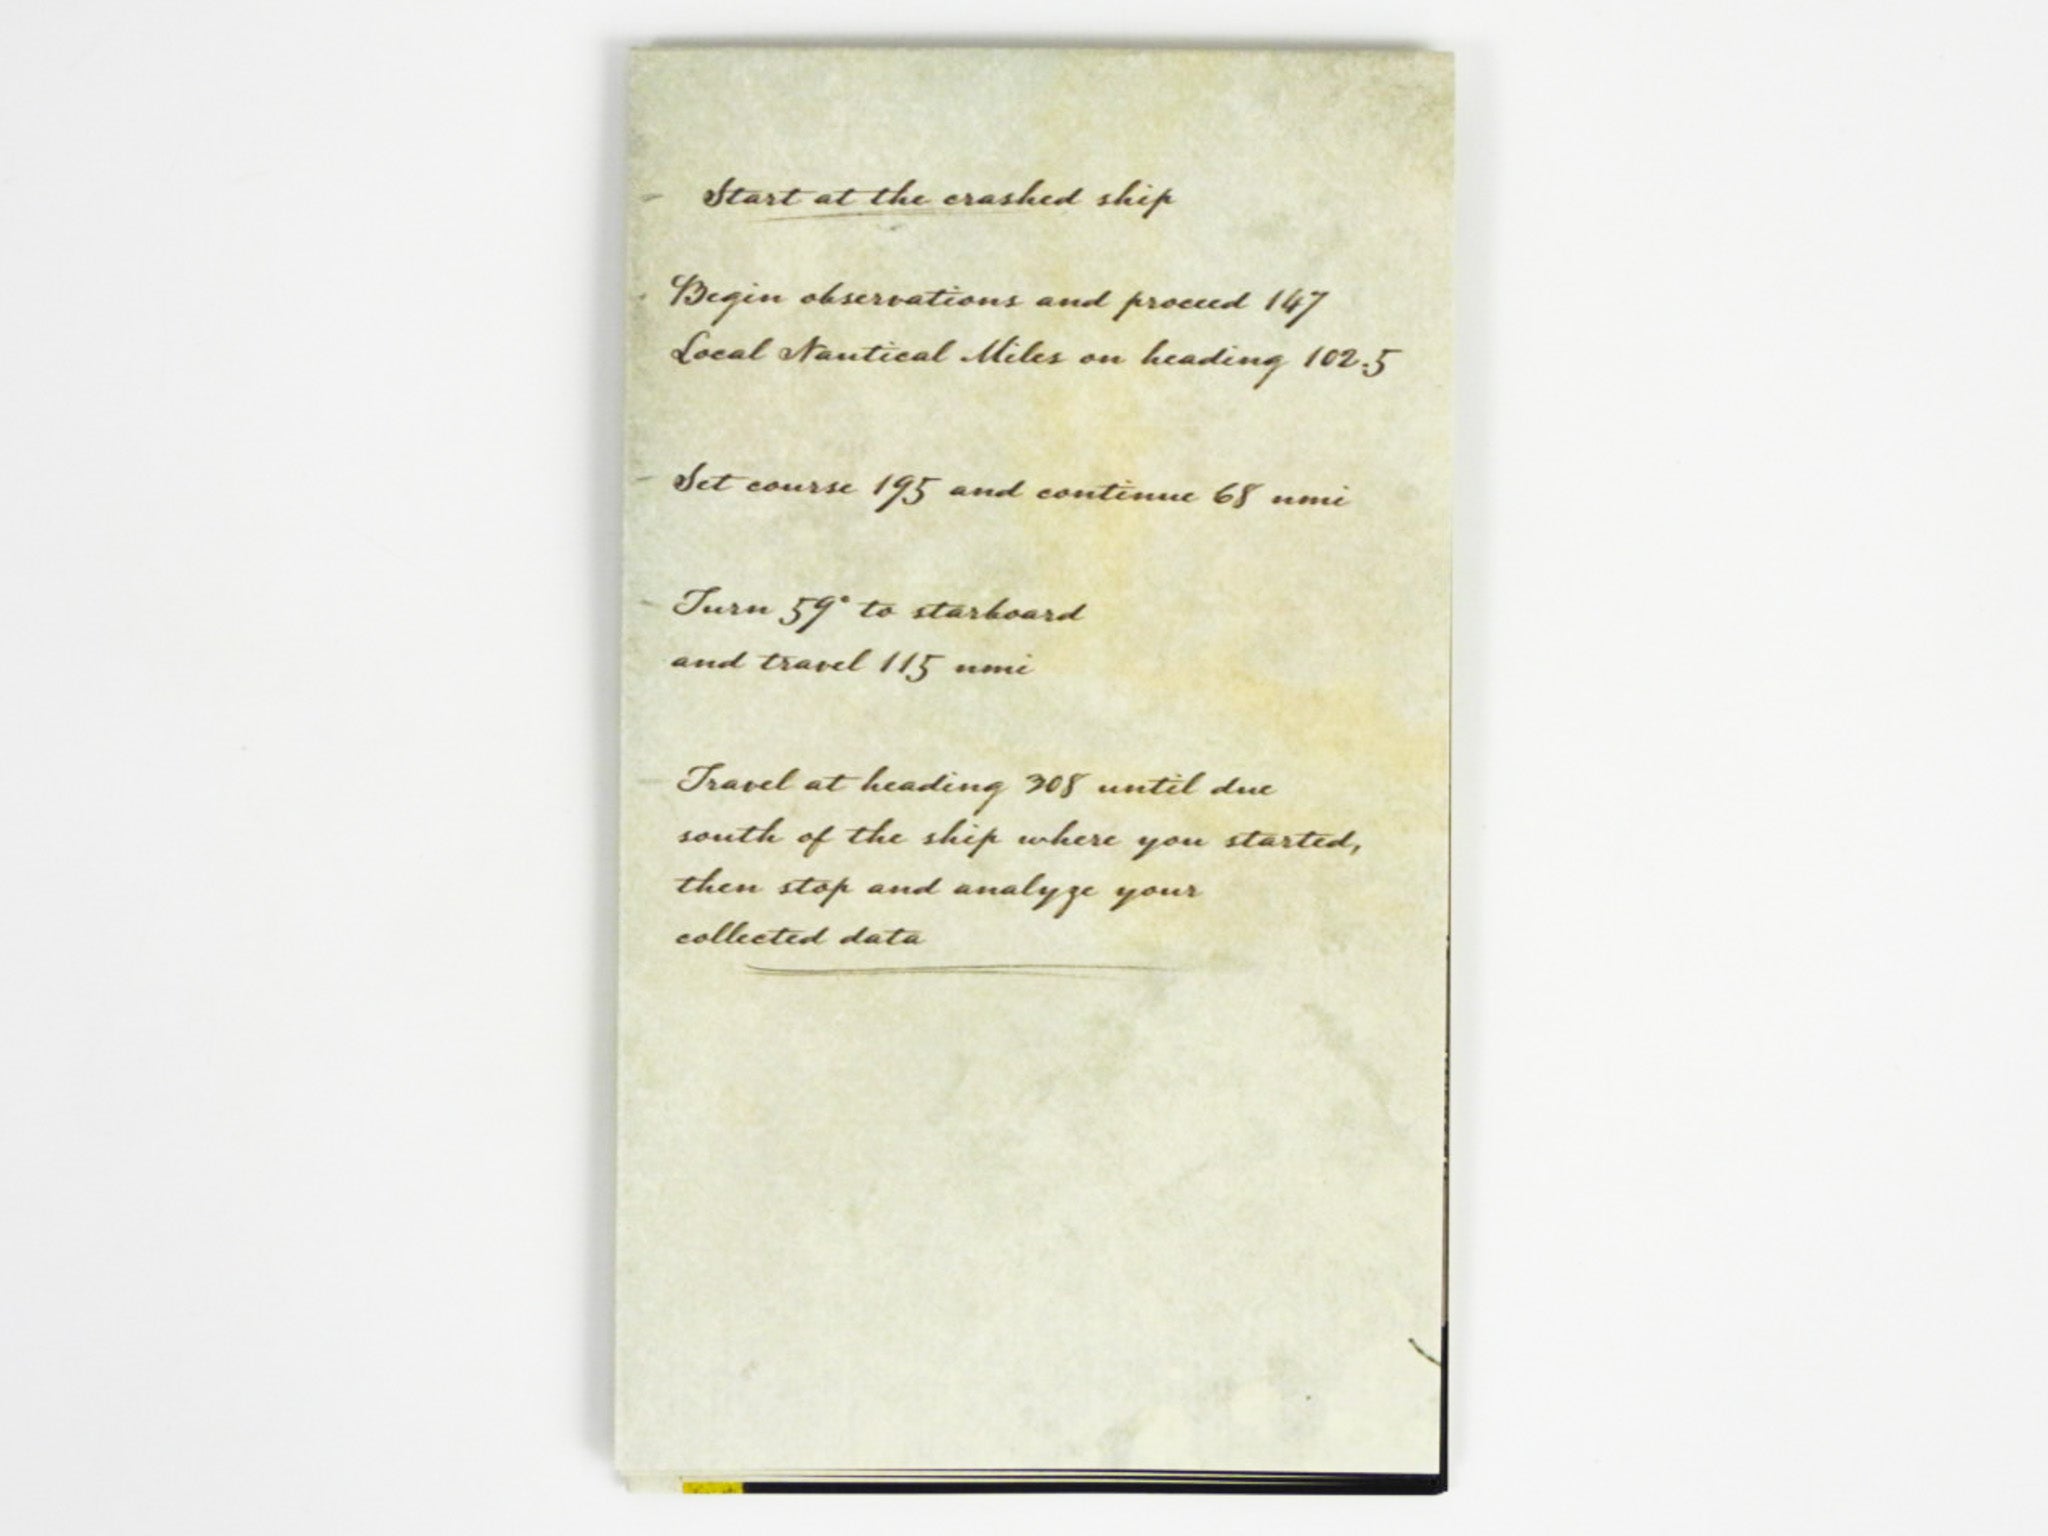 Start at the crashed ship
Begin observations and proceed 147
Local Nautical Miles on heading 102.5
Set course 195 and continue 68 nmi
Turn 59° to starboard
and travel 115 nmi
Travel at heading 308 until due
south of the ship where you started,
then stop and analyze your
collected data